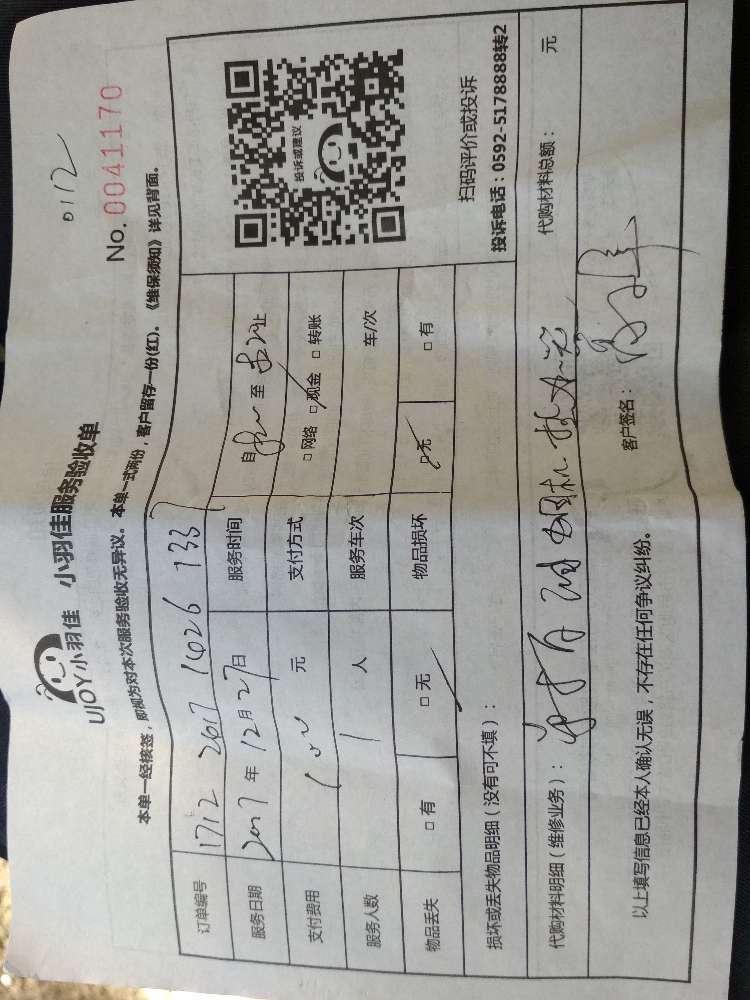 0112
No. 0041170
UJOY小羽佳 小羽佳服务验收单
本单一经核签，即视为对本次服务验收无异议。本单一式两份，客户留存一份(红)。《维保须知》详见背面。
订单编号 1712 2617 1426 133
服务日期 2017年12月27日 服务时间 自 至 止
支付费用 100元 支付方式 □ 网络 □ 现金 □ 转账
服务人数 1人 服务车次 车/次
物品丢失 □ 有 □ 无 物品损坏 □ 无 □ 有
投诉或建议
扫码评价或投诉
投诉电话：0592-5178888转2
损坏或丢失物品明细（没有可不填）：
代购材料明细（维修业务）： 代购材料总额： 元
以上填写信息已经本人确认无误，不存在任何争议纠纷。 客户签名：